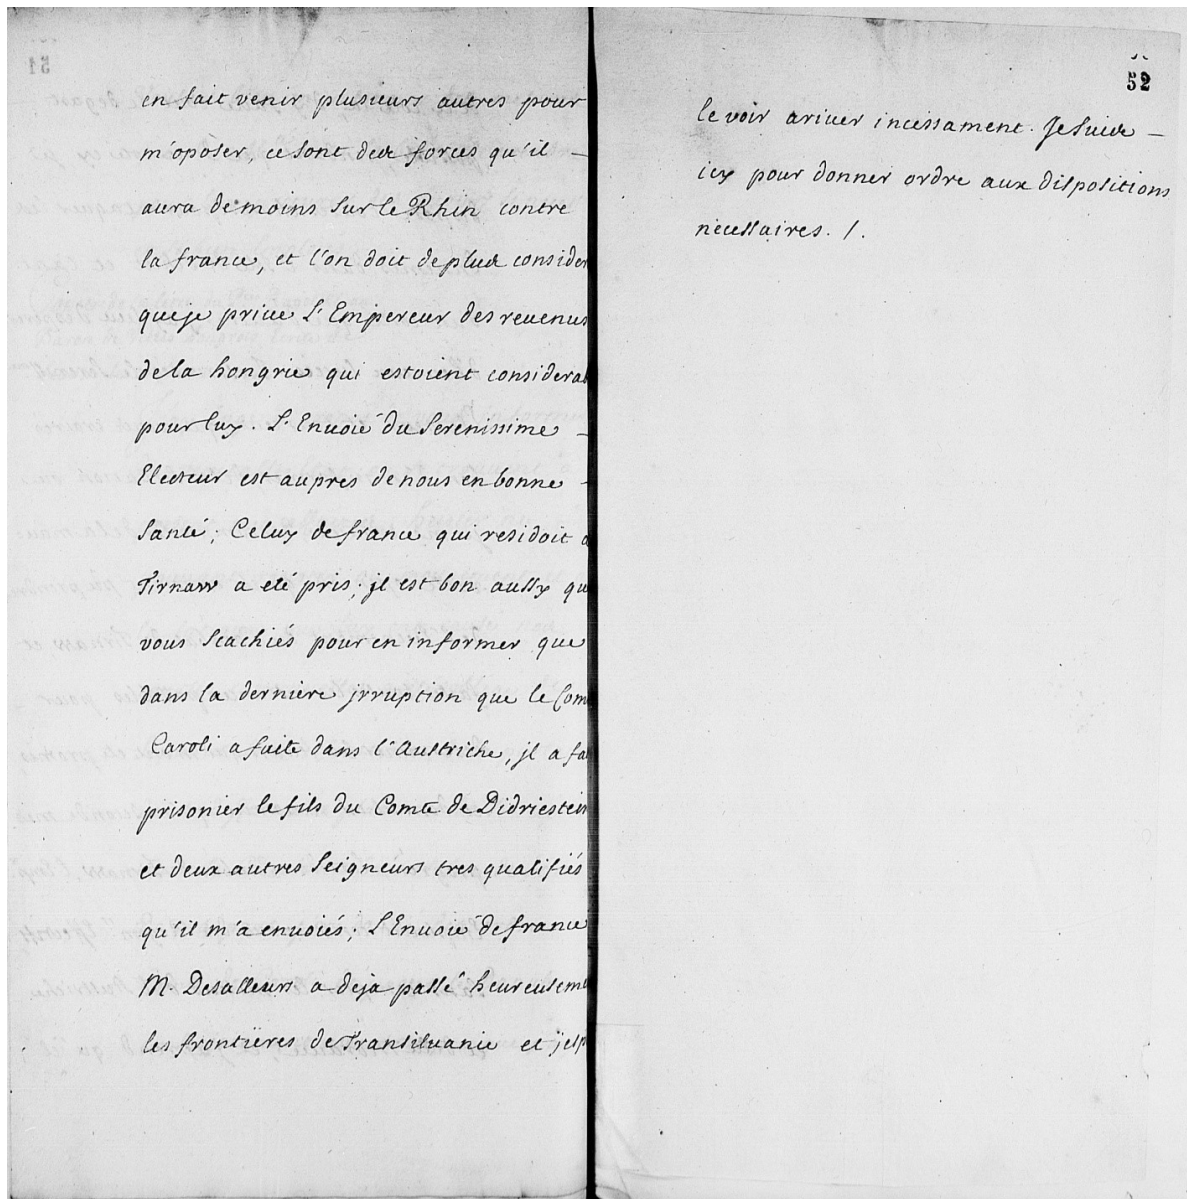 en fait venir plusieurs autres pour
m'oposer, ce sont des forces qu'il
aura de moins sur le Rhin contre
la france, et l'on doit de plus consider
que je prive L'Empereur des revenus
de la hongrie qui estoient considerab
pour luy. L'Envoié du Serenissime
Electeur est aupres de nous en bonne
santé; Celuy de france qui residoit a
Tirnaw a eté pris; jl est bon aussy qu
vous scachiés pour en informer que
dans la derniere jrruption que le Com
Caroli a faite dans l'Austriche, jl a fa
prisonier le fils du Comte de Didriestein
et deux autres Seigneurs tres qualifiés
qu'il m'a envoiés; L'Envoié de france
M. Desalleurs a deja passé heureuseme
les frontieres de Transilvanie et j'esp
52
le voir ariver incessament. Je suis
icy pour donner ordre aux dispositions
necessaires. /.